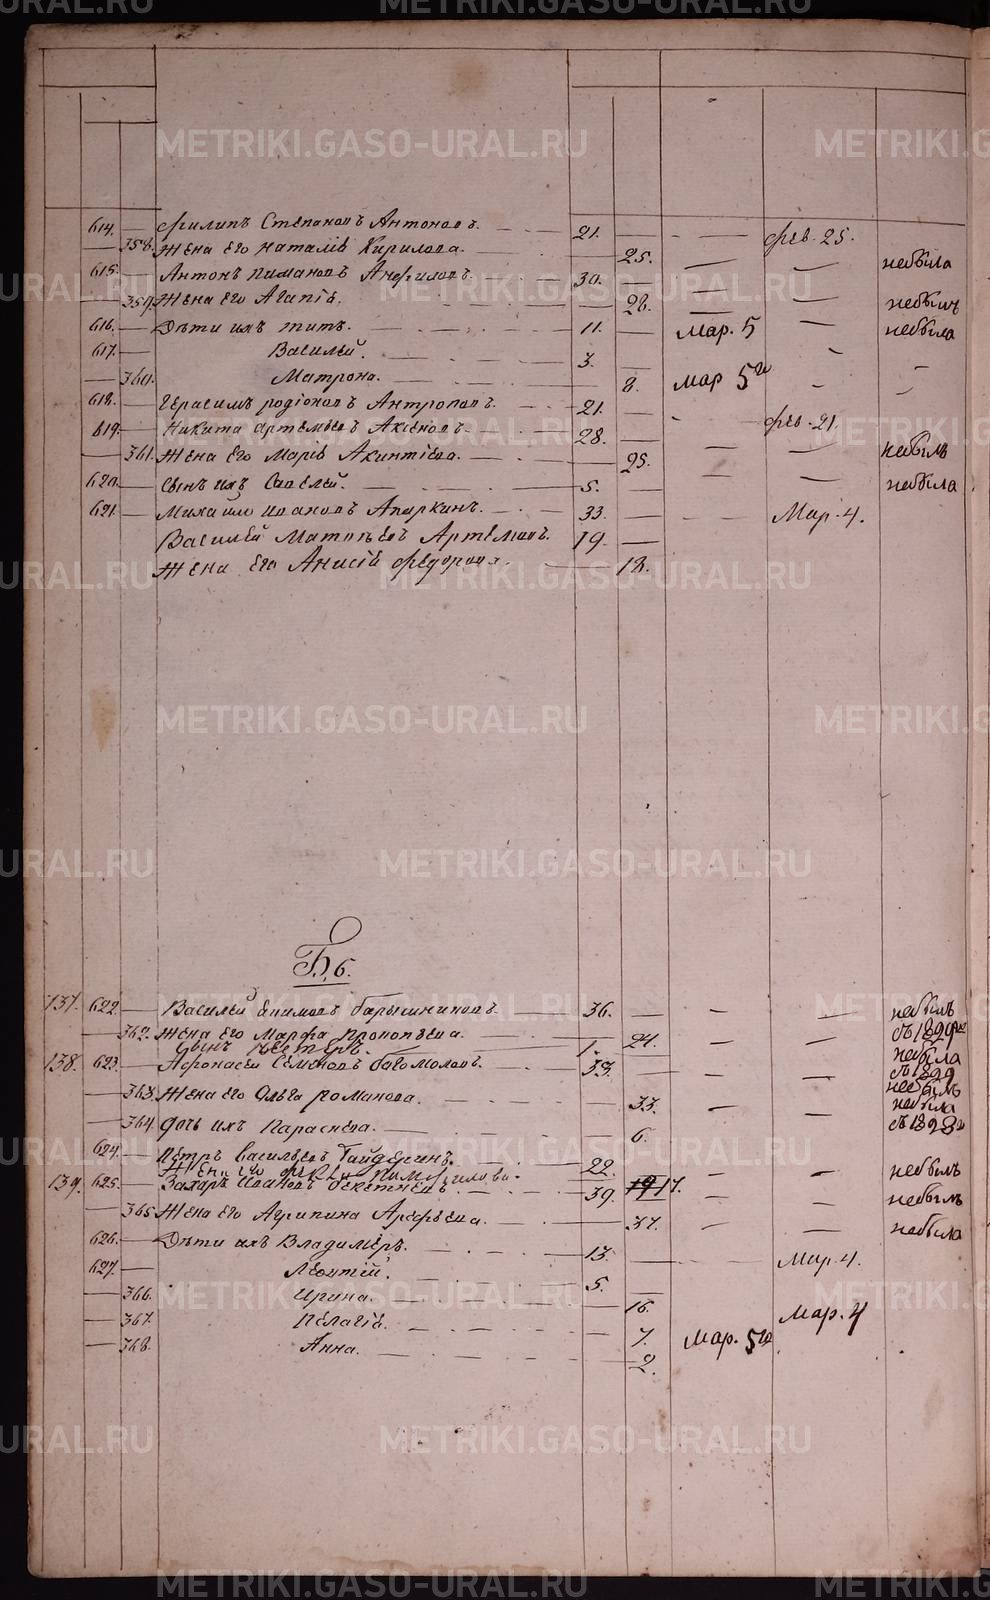 614. Филипъ Степановъ Антоновъ. 21. фев. 25.
358. Жена его Наталіѣ Кирилова. 25. небыла
615. Антонъ Пимановъ Анфиловъ. 30. небылъ
359. Жена его Агапіѣ. 28. небыла
616. Дѣти ихъ Титъ. 11. Мар. 5
617. Василей. 3.
360. Матрона. 8. Мар 5го
618. Герасимъ Родіоновъ Антроповъ. 21. фев. 21.
619. Никита Артемьевъ Аксеновъ. 28. небылъ
361. Жена его Маріѣ Акинтіева. 25. небыла
620. Сынъ ихъ Савелей. 5.
621. Михайло Ивановъ Апаркинъ. 33. Мар. 4.
Василей Матвѣевъ Артемовъ. 19.
Жена его Анисіѣ Федорова. 18.
Б. б.
137. 622. Василей Епимовъ Барышниковъ. 36. небылъ
съ 1829
362. Жена его Марфа Прокопьева. 24. небыла
Сынъ Нестеръ. 1. съ 1829
138. 623. Афонасей Семеновъ Багомоловъ. 33. небылъ
363. Жена его Ольга Романова. 33. небыла
364. Дочь ихъ Парасковья. 6. съ 1828
624. Петръ Васильевъ Гайдеринъ. 22. небылъ
Жена его 17.
139. 625. Захаръ Ивановъ Бекетневъ. 39. небылъ
365. Жена его Агрипина Арефьева. 37. небыла
626. Дѣти ихъ Владимеръ. 13. Мар. 4.
627. Леонтій. 5.
366. Ирина. 16. Мар. 4
367. Пелагіѣ. 7. Мар. 5го
368. Анна. 2.
METRIKI.GASO-URAL.RU